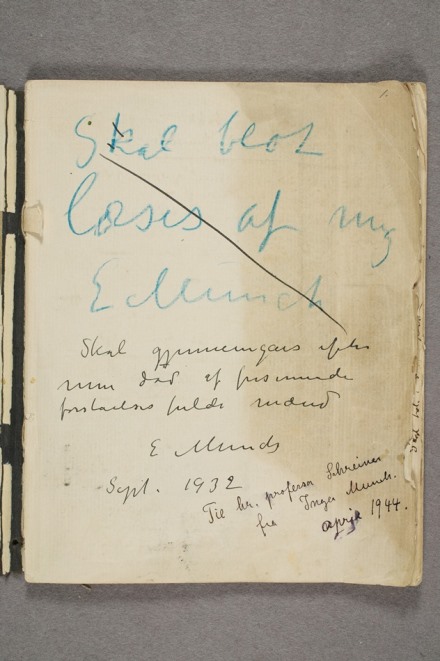 Skal blot
læses af mig
E Munch
Skal gjennemgaaes efter
min død af frisinnede
forstaelsesfulde mænd
E Munch
Sept. 1932
Til hr. professor Schreiner
fra Inger Munch.
april 1944.